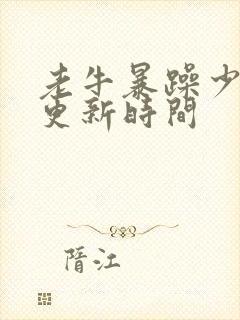 老牛暴躁少
更新時間
晋江